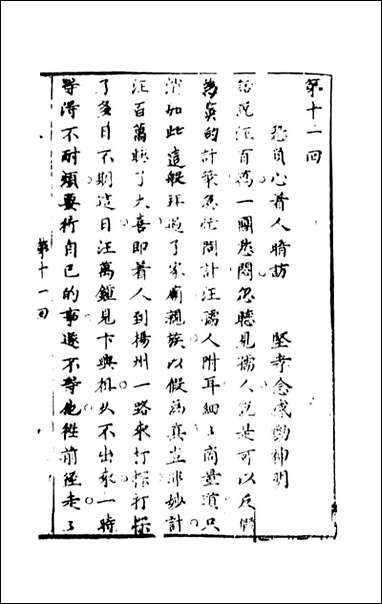 第十一回
恐負心着人暗訪　堅孝念感動神明
話說汪百萬一團愁悶忽聽見孺人說是可以反假
為真的計策急忙問計汪孺人附耳細々商量道只
消如此這般拜過了家廟親族以假為真豈非妙計
汪百萬聽了大喜即着人到揚州一路來打探打探
了多日不期這日汪萬鍾見卞興祖久不出來一時
等得不耐煩要行自己的事遂不等他往前徑走了
第十一回